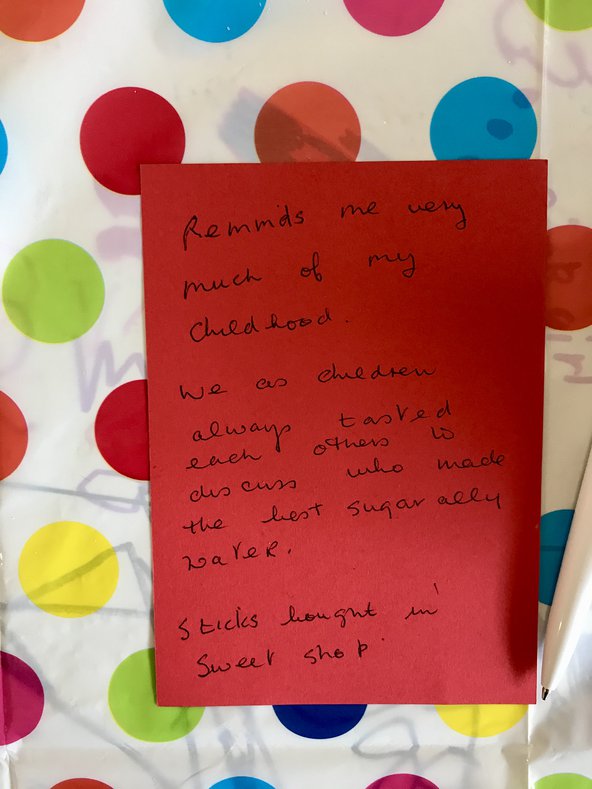 Remmids me very
much of my
Childhood.
We as children
always tasted
each others to
discuss who made
the best sugar ally
water.
Sticks bought in
Sweet shop.